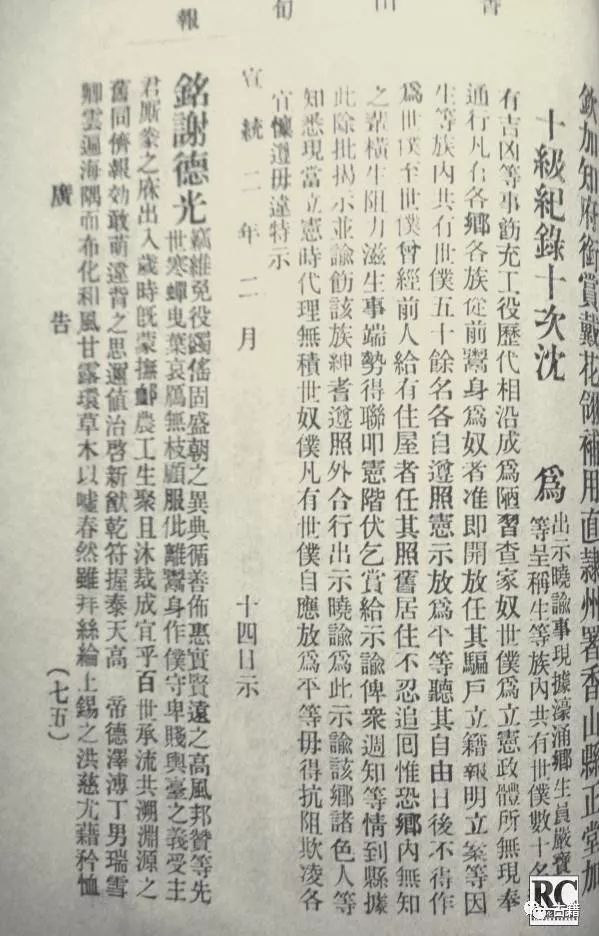 香山旬報
欽加知府銜賞戴花翎補用直隸州署香山縣正堂加
十級紀錄十次沈 為
出示曉諭事現據濠涌鄉生員嚴寶
等呈稱生等族內共有世僕數十名
有吉凶等事飭充工役歷代相沿成為陋習查家奴世僕為立憲政體所無現奉
通行凡各鄉各族從前鬻身為奴者准即開放任其騙戶立籍報明立案等因
生等族內共有世僕五十餘名各自遵照憲示放為平等聽其自由日後不得作
為世僕至世僕曾經前人給有住屋者任其照舊居住不忍追囘惟恐鄉內無知
之輩橫生阻力滋生事端勢得聯叩憲階伏乞賞給示諭俾衆週知等情到縣據
此除批揭示並諭飭該族紳耆遵照外合行出示曉諭為此示諭該鄉諸色人等
知悉現當立憲時代理無積世奴僕凡有世僕自應放為平等毋得抗阻欺凌各
宜懍遵毋違特示
宣統二年二月 十四日示
銘謝德光
竊維免役蠲徭固盛朝之異典循善佈惠實賢遠之高風邦贊等先
世寒蟬曳葉哀鴈無枝顧服仳離鬻身作僕守卑賤輿臺之義受主
君厮豢之庥出入歲時旣蒙撫卹農工生聚且沐裁成宜乎百世承流共溯淵源之
舊同儕報効敢萌違背之思邇值治啓新猷乾符握泰天高 帝德澤溥丁男瑞雪
卿雲遍海隅而布化和風甘露環草木以噓春然雖拜絲綸上錫之洪慈尤藉矜恤
廣告 (七五)
RC
古籍